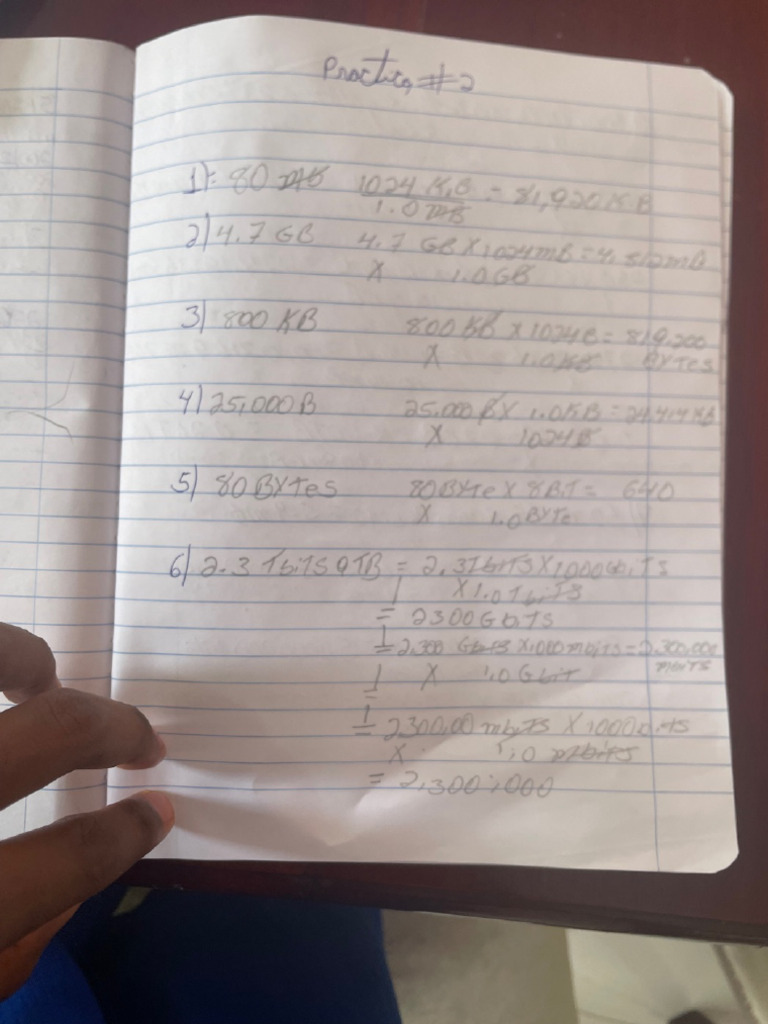 Practica #2
1): 80 MB 1024 KB = 81,920 KB
1.0 MB
2) 4.7 GB 4.7 GB X 1024 mB = 4.812 mB
X 1.0 GB
3) 800 KB 800 KB X 1024 B = 819.200
X 1.0 KB BYTes
4) 25,000 B 25.000 B X 1.0 KB = 24.414 KB
X 1024 B
5) 80 BYTes 80 BYTe X 8 BiT = 640
X 1.0 BYTe
6) 2.3 TbiTS a TB = 2.3 TbiTS X 1000 GbiTS
X 1.0 TbiTS
= 2300 GbiTS
= 2.300 GbiTS X 1000 mbiTS = 2.300,000
X 1.0 Gbit mbiTS
= 2300,00 mbiTS X 1000 biTS
X 1,0 mbiTS
= 2,300:,000